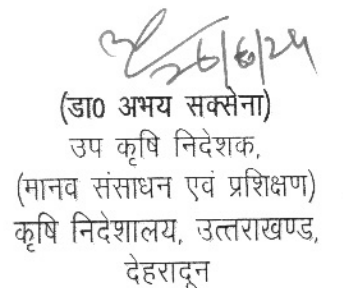 26/6/24
(डा0 अभय सक्सेना)
उप कृषि निदेशक,
(मानव संसाधन एवं प्रशिक्षण)
कृषि निदेशालय, उत्तराखण्ड,
देहरादून